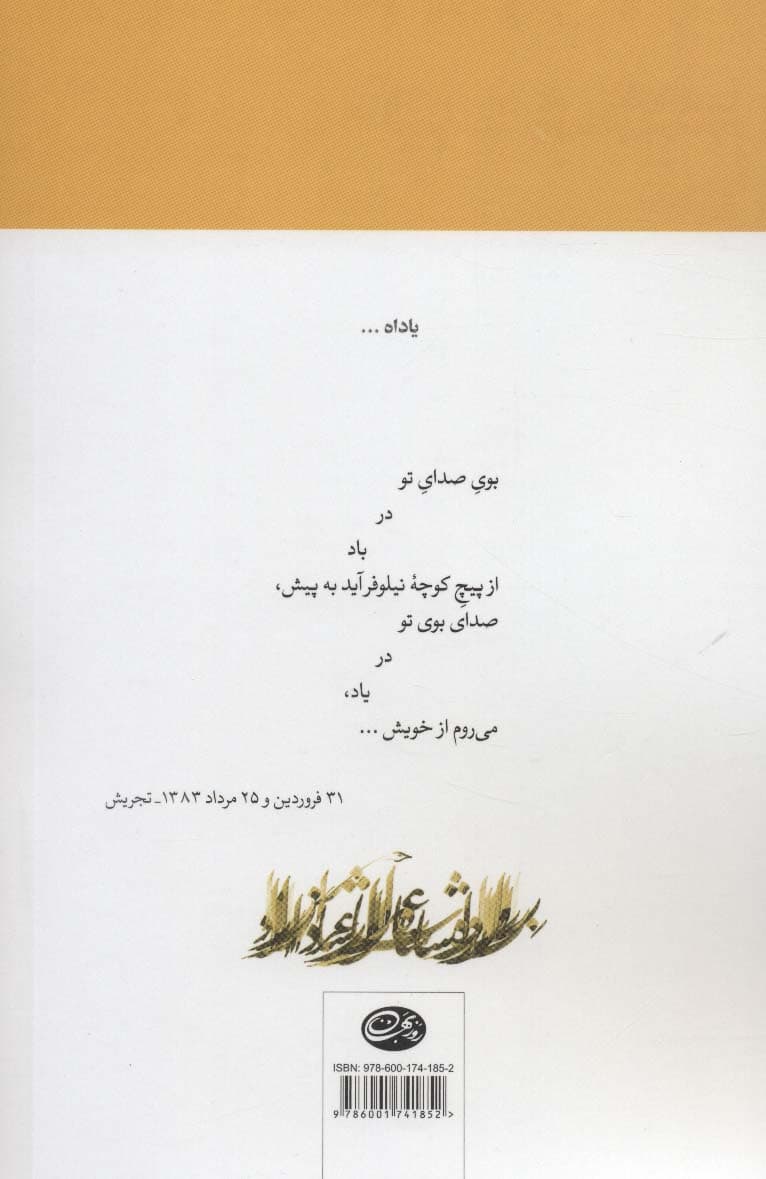 یاداه ...
بویِ صدایِ تو
در
باد
از پیچِ کوچهٔ نیلوفر آید به پیش،
صدای بوی تو
در
یاد،
می‌روم از خویش ...
۳۱ فروردین و ۲۵ مرداد ۱۳۸۳ـ تجریش
روزبهان
ISBN: 978-600-174-185-2
9 786001 741852 >